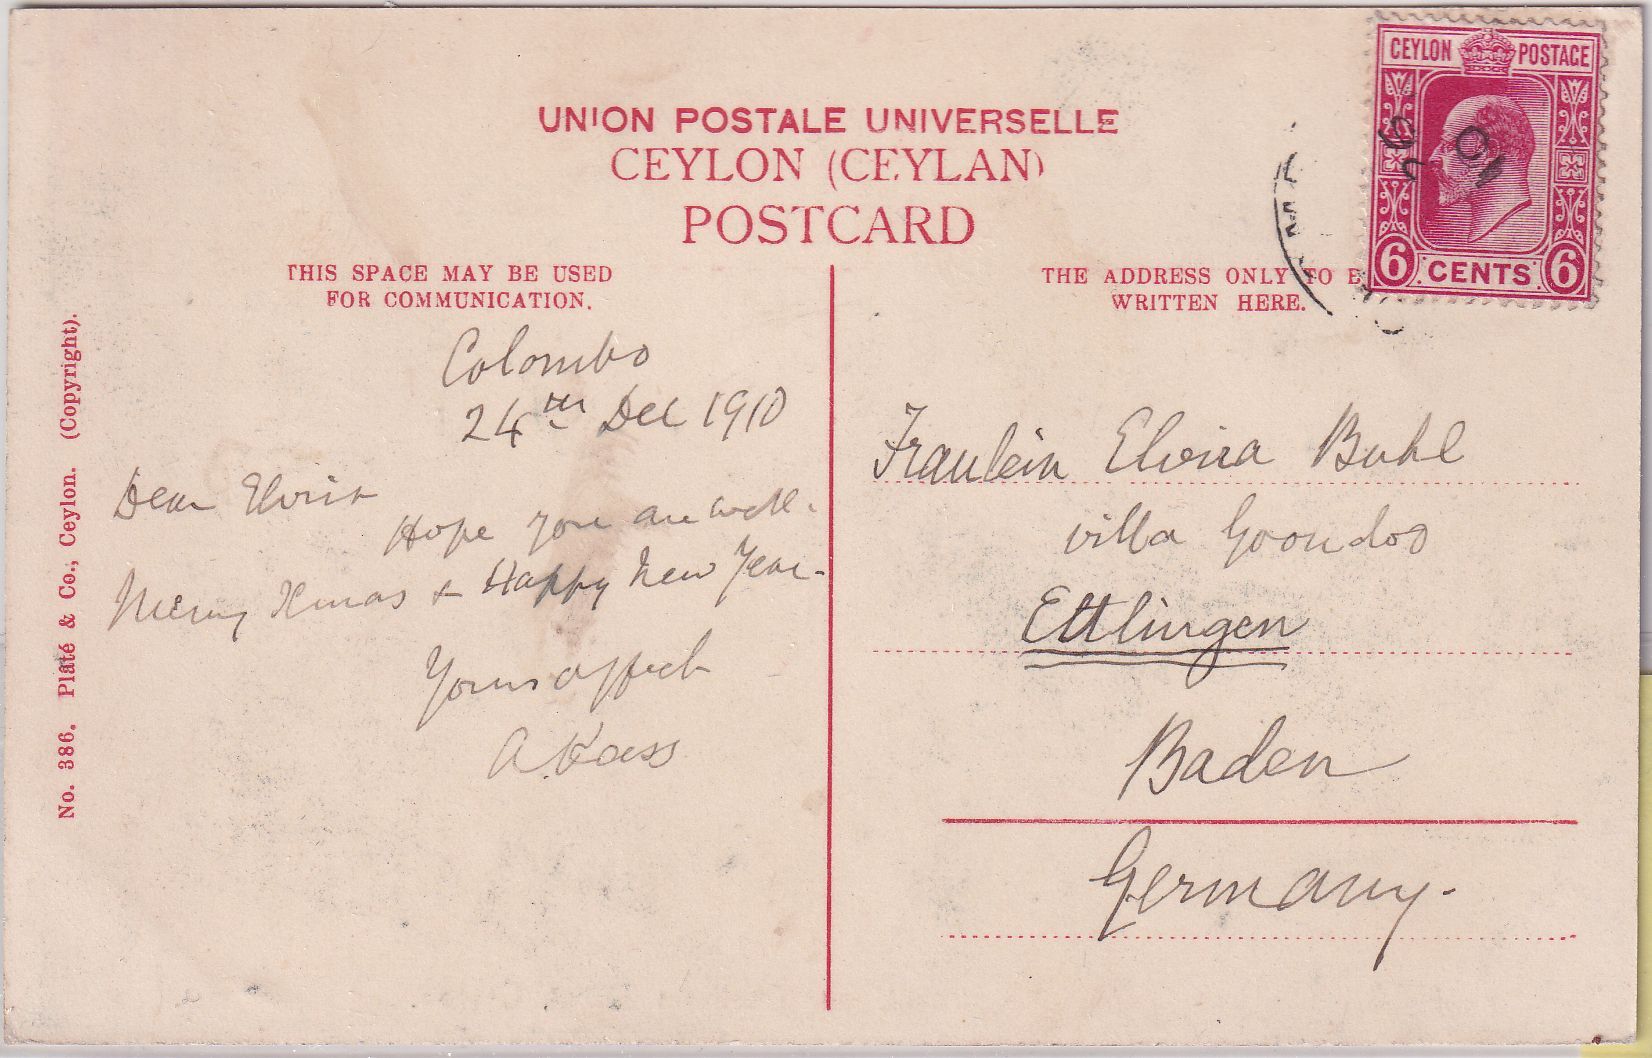 UNION POSTALE UNIVERSELLE
CEYLON (CEYLAN)
POSTCARD
THIS SPACE MAY BE USED
FOR COMMUNICATION.
THE ADDRESS ONLY TO B
WRITTEN HERE.
CEYLON POSTAGE
6 CENTS 6
10
No. 386. Platé & Co., Ceylon. (Copyright).
Colombo
24th Dec 1910
Dear Elvira
Hope you are well.
Merry Xmas & Happy New Year.
Yours affect
A.
Fraulein Elvira Buhl
villa Goondoo
Ettlingen
Baden
Germany.